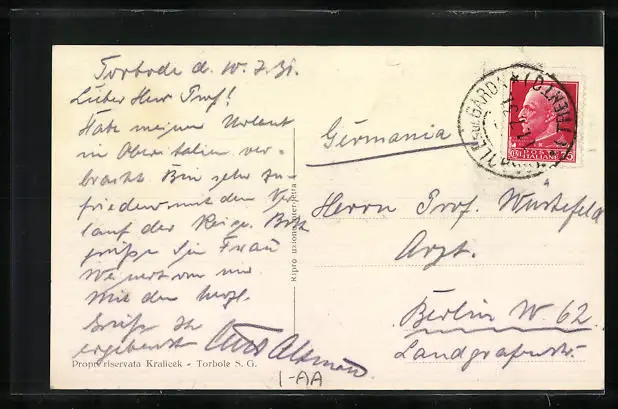 Torbole d. 10.7.31.
Lieber Herr Prof!
Habe meinen Urlaub
in Oberitalien ver-
bracht. Bin sehr zu-
frieden mit dem Ver-
lauf der Reise. Bitte
grüssen Sie Frau
von mir
Mit den herzl.
Grüssen Ihr
ergebenst
Propr. riservata Kralicek - Torbole S. G.
Ripro uzione interdetta
Germania
Herrn Prof. Wustefeld
Arzt.
Berlin W 62
Landgrafenstr.
POSTE
ITALIANE
75
SUL GARDA
(TRENTO)
1-AA